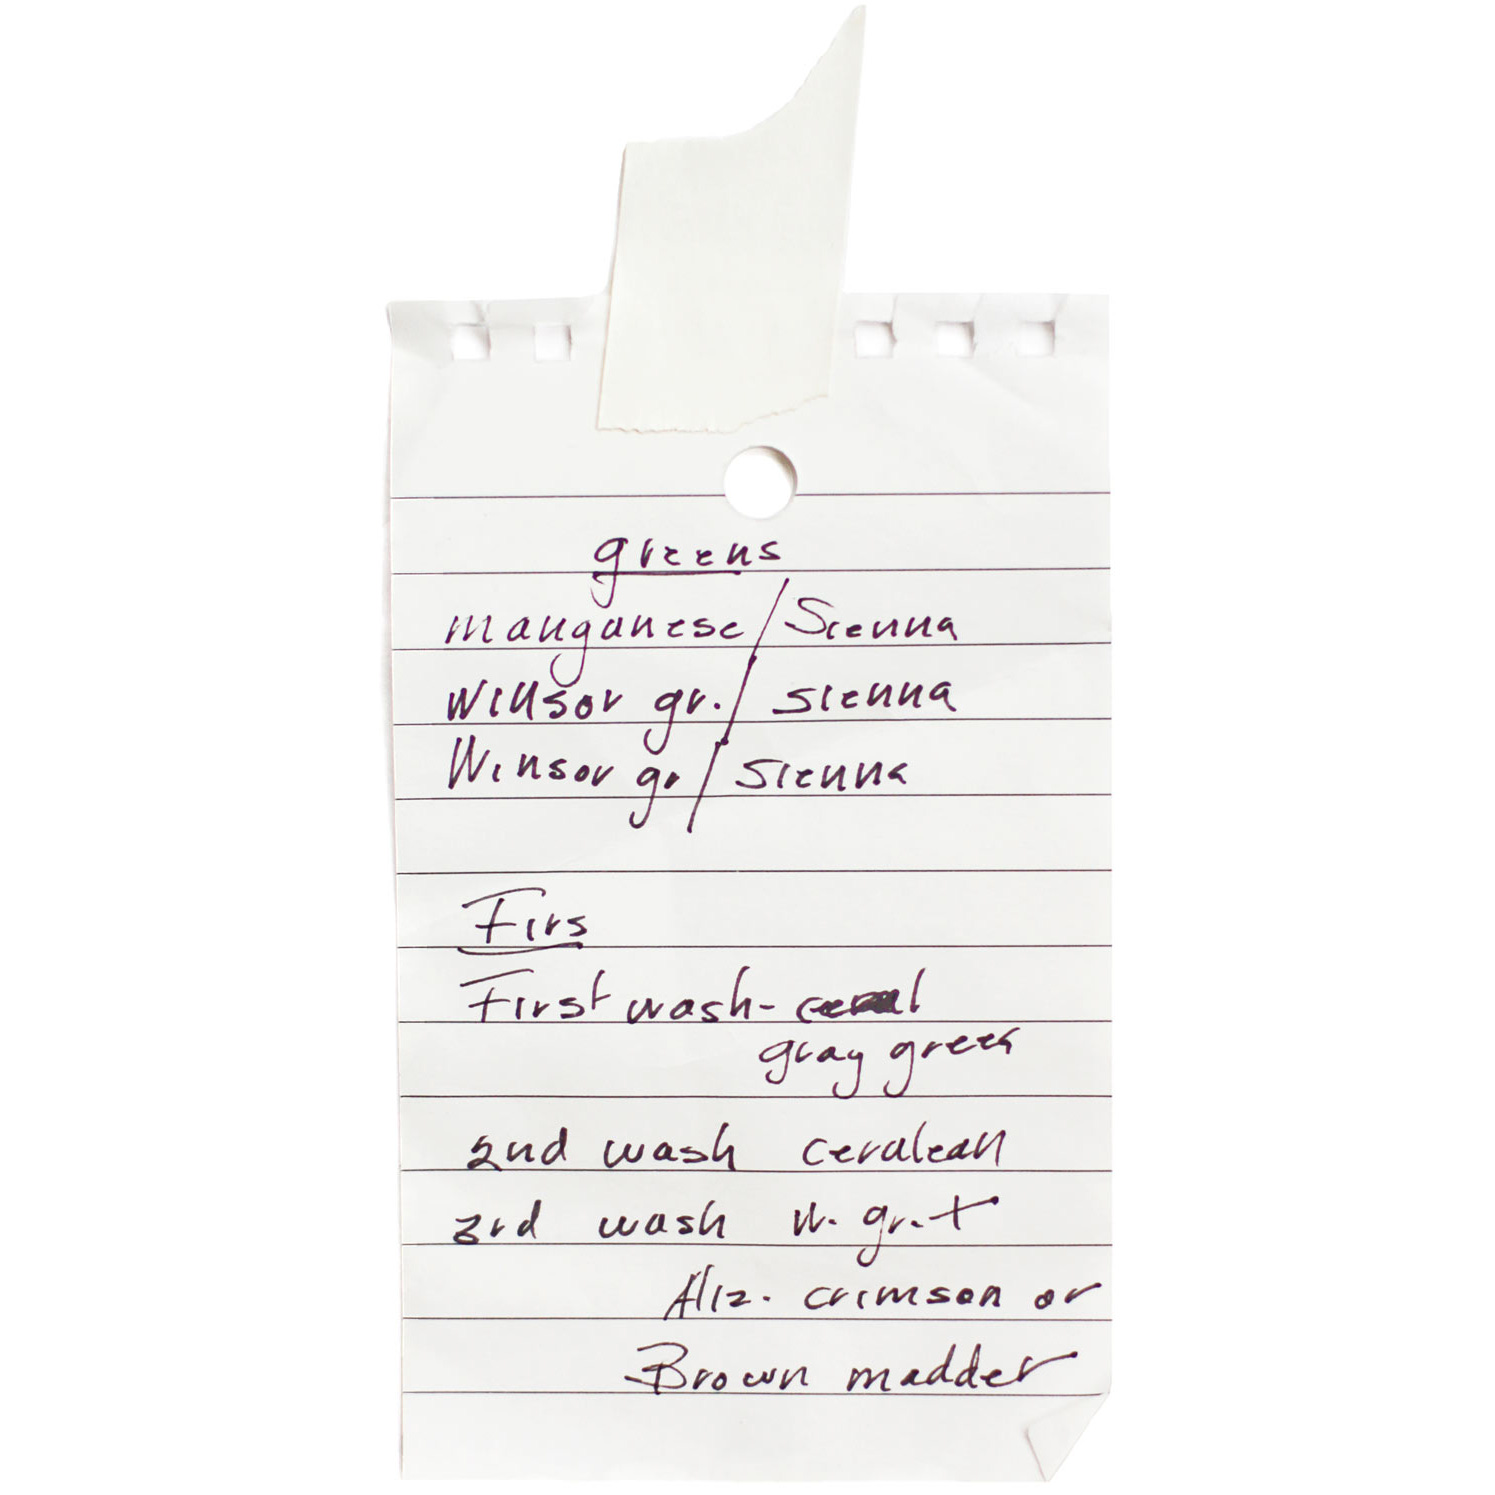 greens
manganese / Sienna
winsor gr. / sienna
Winsor gr / sienna
Firs
First wash-
gray green
2nd wash cerulean
3rd wash w. gr. +
Aliz. crimson or
Brown madder